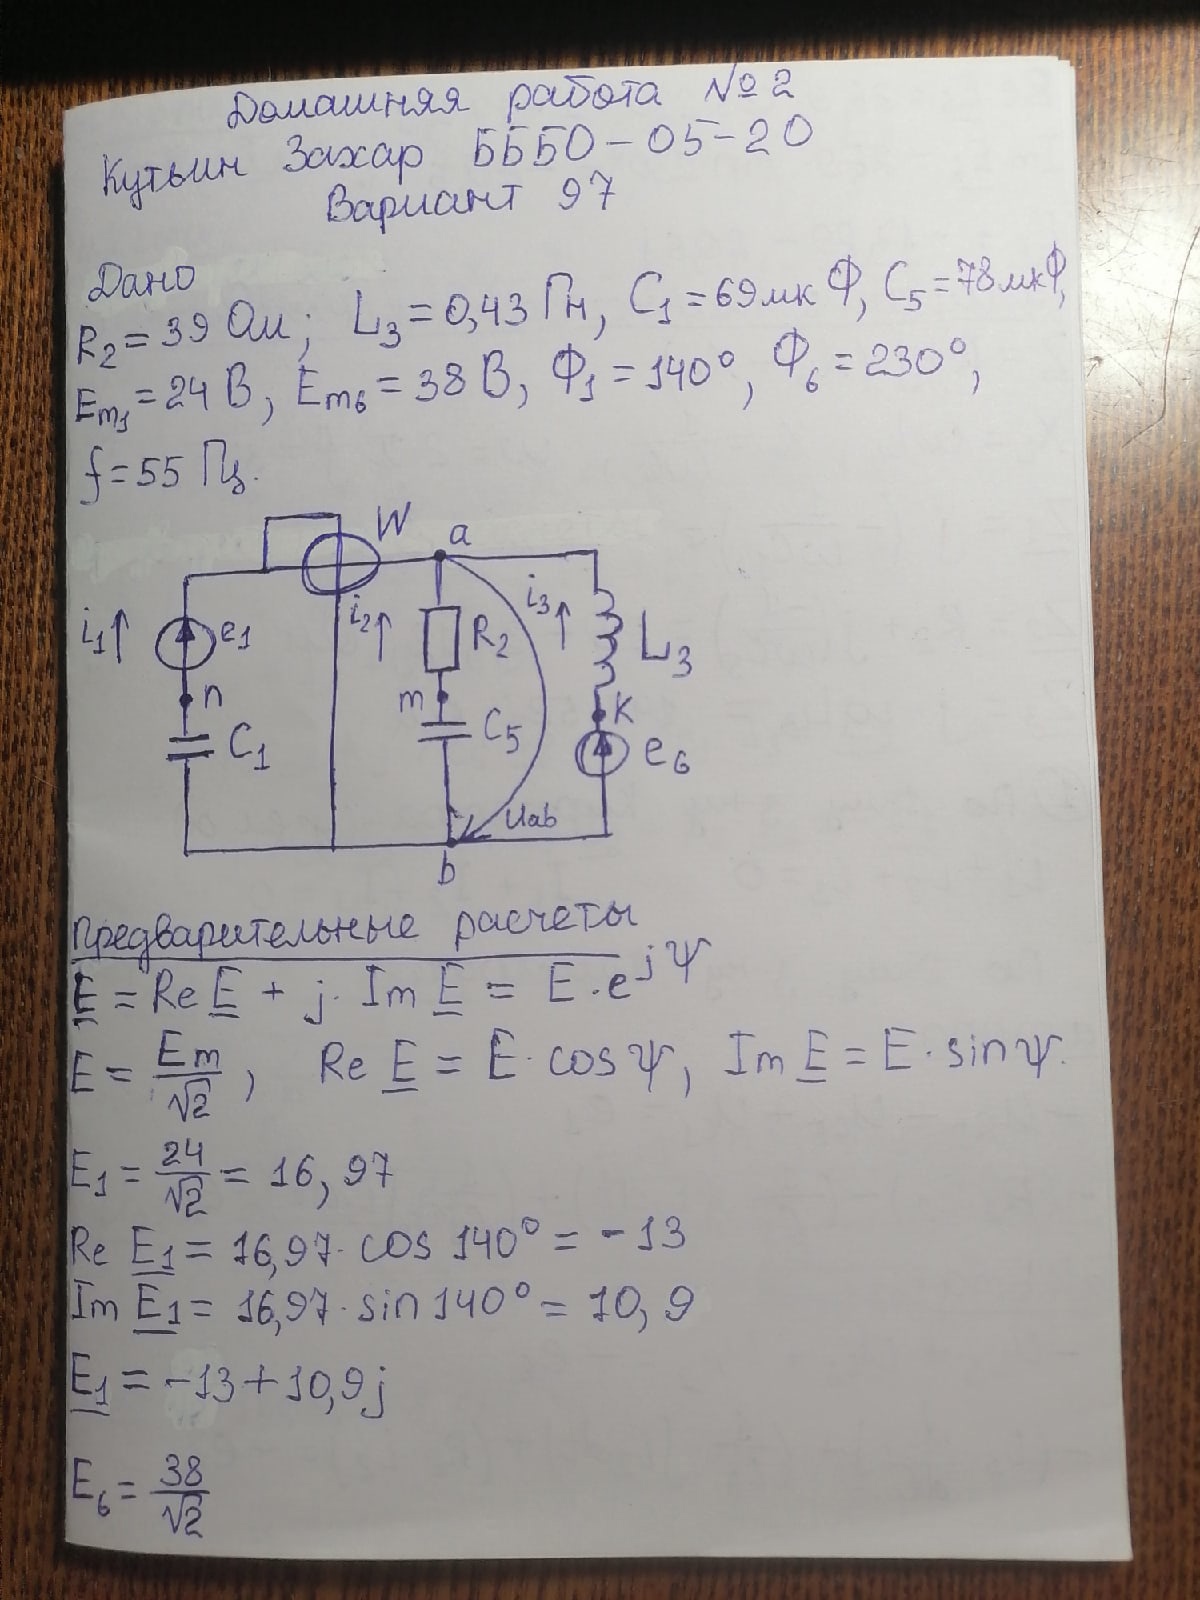 Домашняя работа №2
Кутьин Захар ББ50-05-20
Вариант 97
Дано
R₂ = 39 Ом; L₃ = 0,43 Гн, C₁ = 69 мкФ, C₅ = 78 мкФ,
Em₁ = 24 В, Em₆ = 38 В, Ф₁ = 140°, Ф₆ = 230°,
f = 55 Гц.
W a
i₁↑ e₁ i₂↑ R₂ i₃↑ L₃
n m k
C₁ C₅ e₆
Uab
b
Предварительные расчеты
E = Re E + j · Im E = E · e^jψ
E = Em/√2, Re E = E · cos ψ, Im E = E · sin ψ.
E₁ = 24/√2 = 16,97
Re E₁ = 16,97 · cos 140° = -13
Im E₁ = 16,97 · sin 140° = 10,9
E₁ = -13 + 10,9j
E₆ = 38/√2